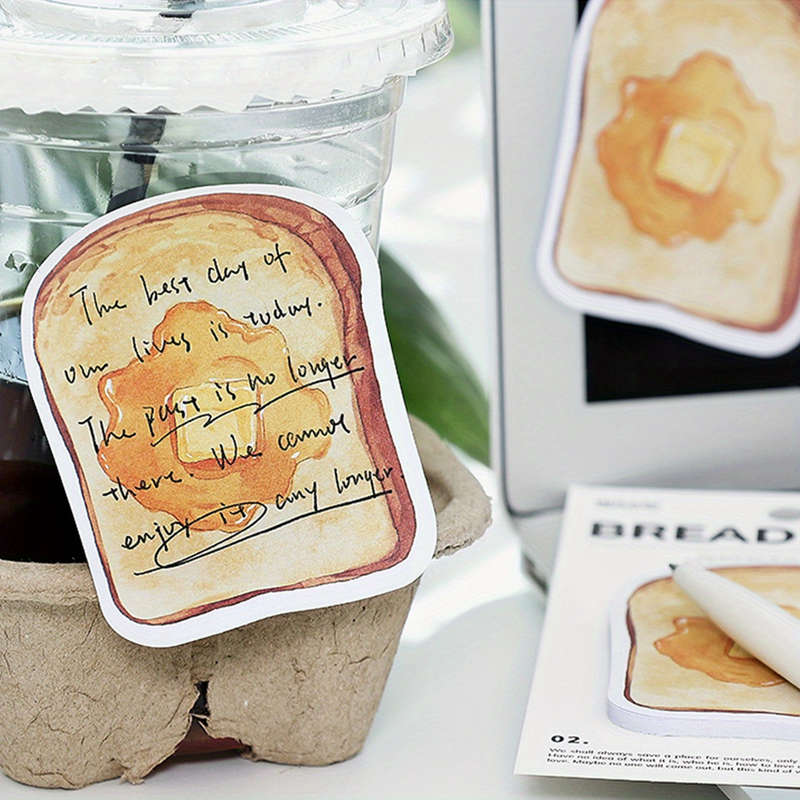 The best day of
our lives is today.
The past is no longer
there. We cannot
enjoy it any longer
BREAD
02.
We shall always save a place for ourselves, only
Have no idea of what it is, who he is, how to love
love. Maybe no one will come, but this kind of